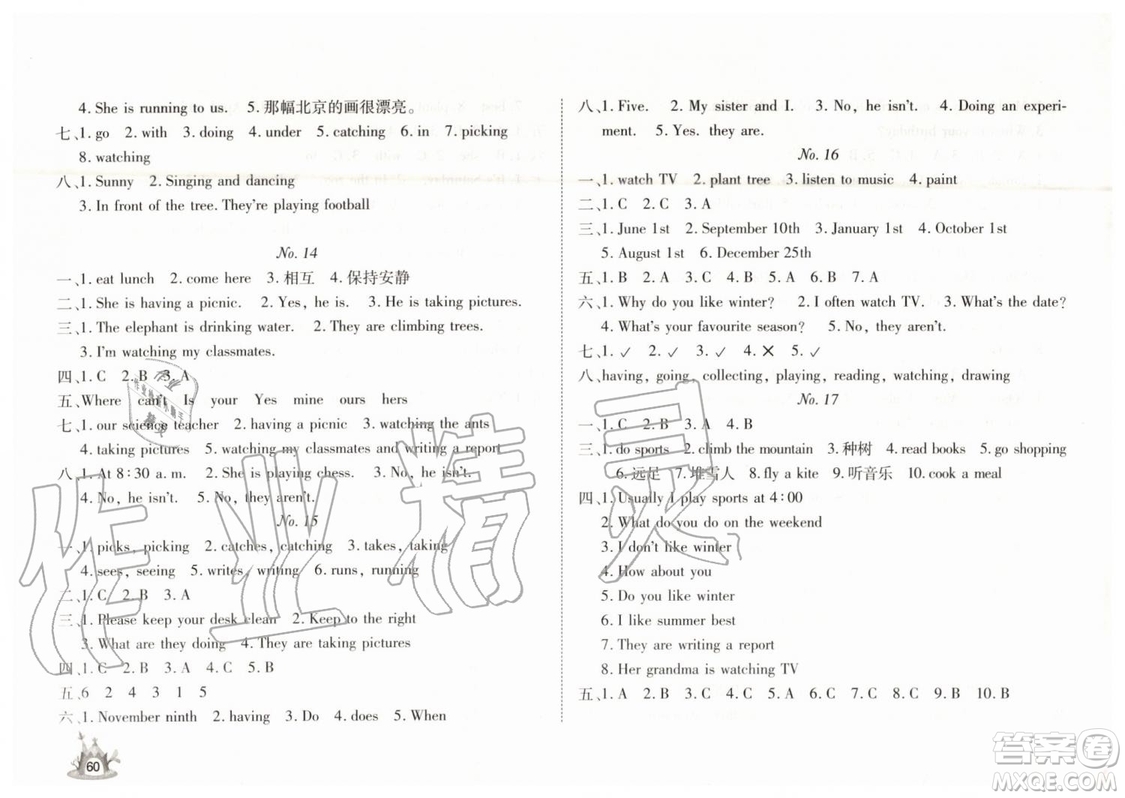 4. She is running to us.  5. 那幅北京的画很漂亮。
七、1. go  2. with  3. doing  4. under  5. catching  6. in  7. picking
8. watching
八、1. Sunny  2. Singing and dancing
3. In front of the tree. They're playing football
No. 14
一、1. eat lunch  2. come here  3. 相互  4. 保持安静
二、1. She is having a picnic.  2. Yes, he is.  3. He is taking pictures.
三、1. The elephant is drinking water.  2. They are climbing trees.
3. I'm watching my classmates.
四、1. C  2. B  3. A
五、Where  can't  Is  your  Yes  mine  ours  hers
七、1. our science teacher  2. having a picnic  3. watching the ants
4. taking pictures  5. watching my classmates and writing a report
八、1. At 8:30 a. m.  2. She is playing chess.  3. No, he isn't.
4. No, he isn't.  5. No, they aren't.
No. 15
一、1. picks, picking  2. catches, catching  3. takes, taking
4. sees, seeing  5. writes, writing  6. runs, running
二、1. C  2. B  3. A
三、1. Please keep your desk clean  2. Keep to the right
3. What are they doing  4. They are taking pictures
四、1. C  2. B  3. A  4. C  5. A
五、6  2  4  3  1  5
六、1. November ninth  2. having  3. Do  4. does  5. When
60
八、1. Five.  2. My sister and I.  3. No, he isn't.  4. Doing an experi-
ment.  5. Yes. they are.
No. 16
一、1. watch TV  2. plant tree  3. listen to music  4. paint
二、1. C  2. C  3. A
三、1. June 1st  2. September 10th  3. January 1st  4. October 1st
5. August 1st  6. December 25th
五、1. B  2. A  3. A  4. B  5. A  6. B  7. A
六、1. Why do you like winter?  2. I often watch TV.  3. What's the date?
4. What's your favourite season?  5. No, they aren't.
七、1. ✓  2. ✓  3. ✓  4. ✗  5. ✓
八、having, going, collecting, playing, reading, watching, drawing
No. 17
一、1. C  2. B  3. A  4. B
三、1. do sports  2. climb the mountain  3. 种树  4. read books  5. go shopping
6. 远足  7. 堆雪人  8. fly a kite  9. 听音乐  10. cook a meal
四、1. Usually I play sports at 4:00
2. What do you do on the weekend
3. I don't like winter
4. How about you
5. Do you like winter
6. I like summer best
7. They are writing a report
8. Her grandma is watching TV
五、1. A  2. B  3. C  4. A  5. C  6. A  7. C  8. A  9. B  10. B
作业精灵
答案卷
MXQE.COM